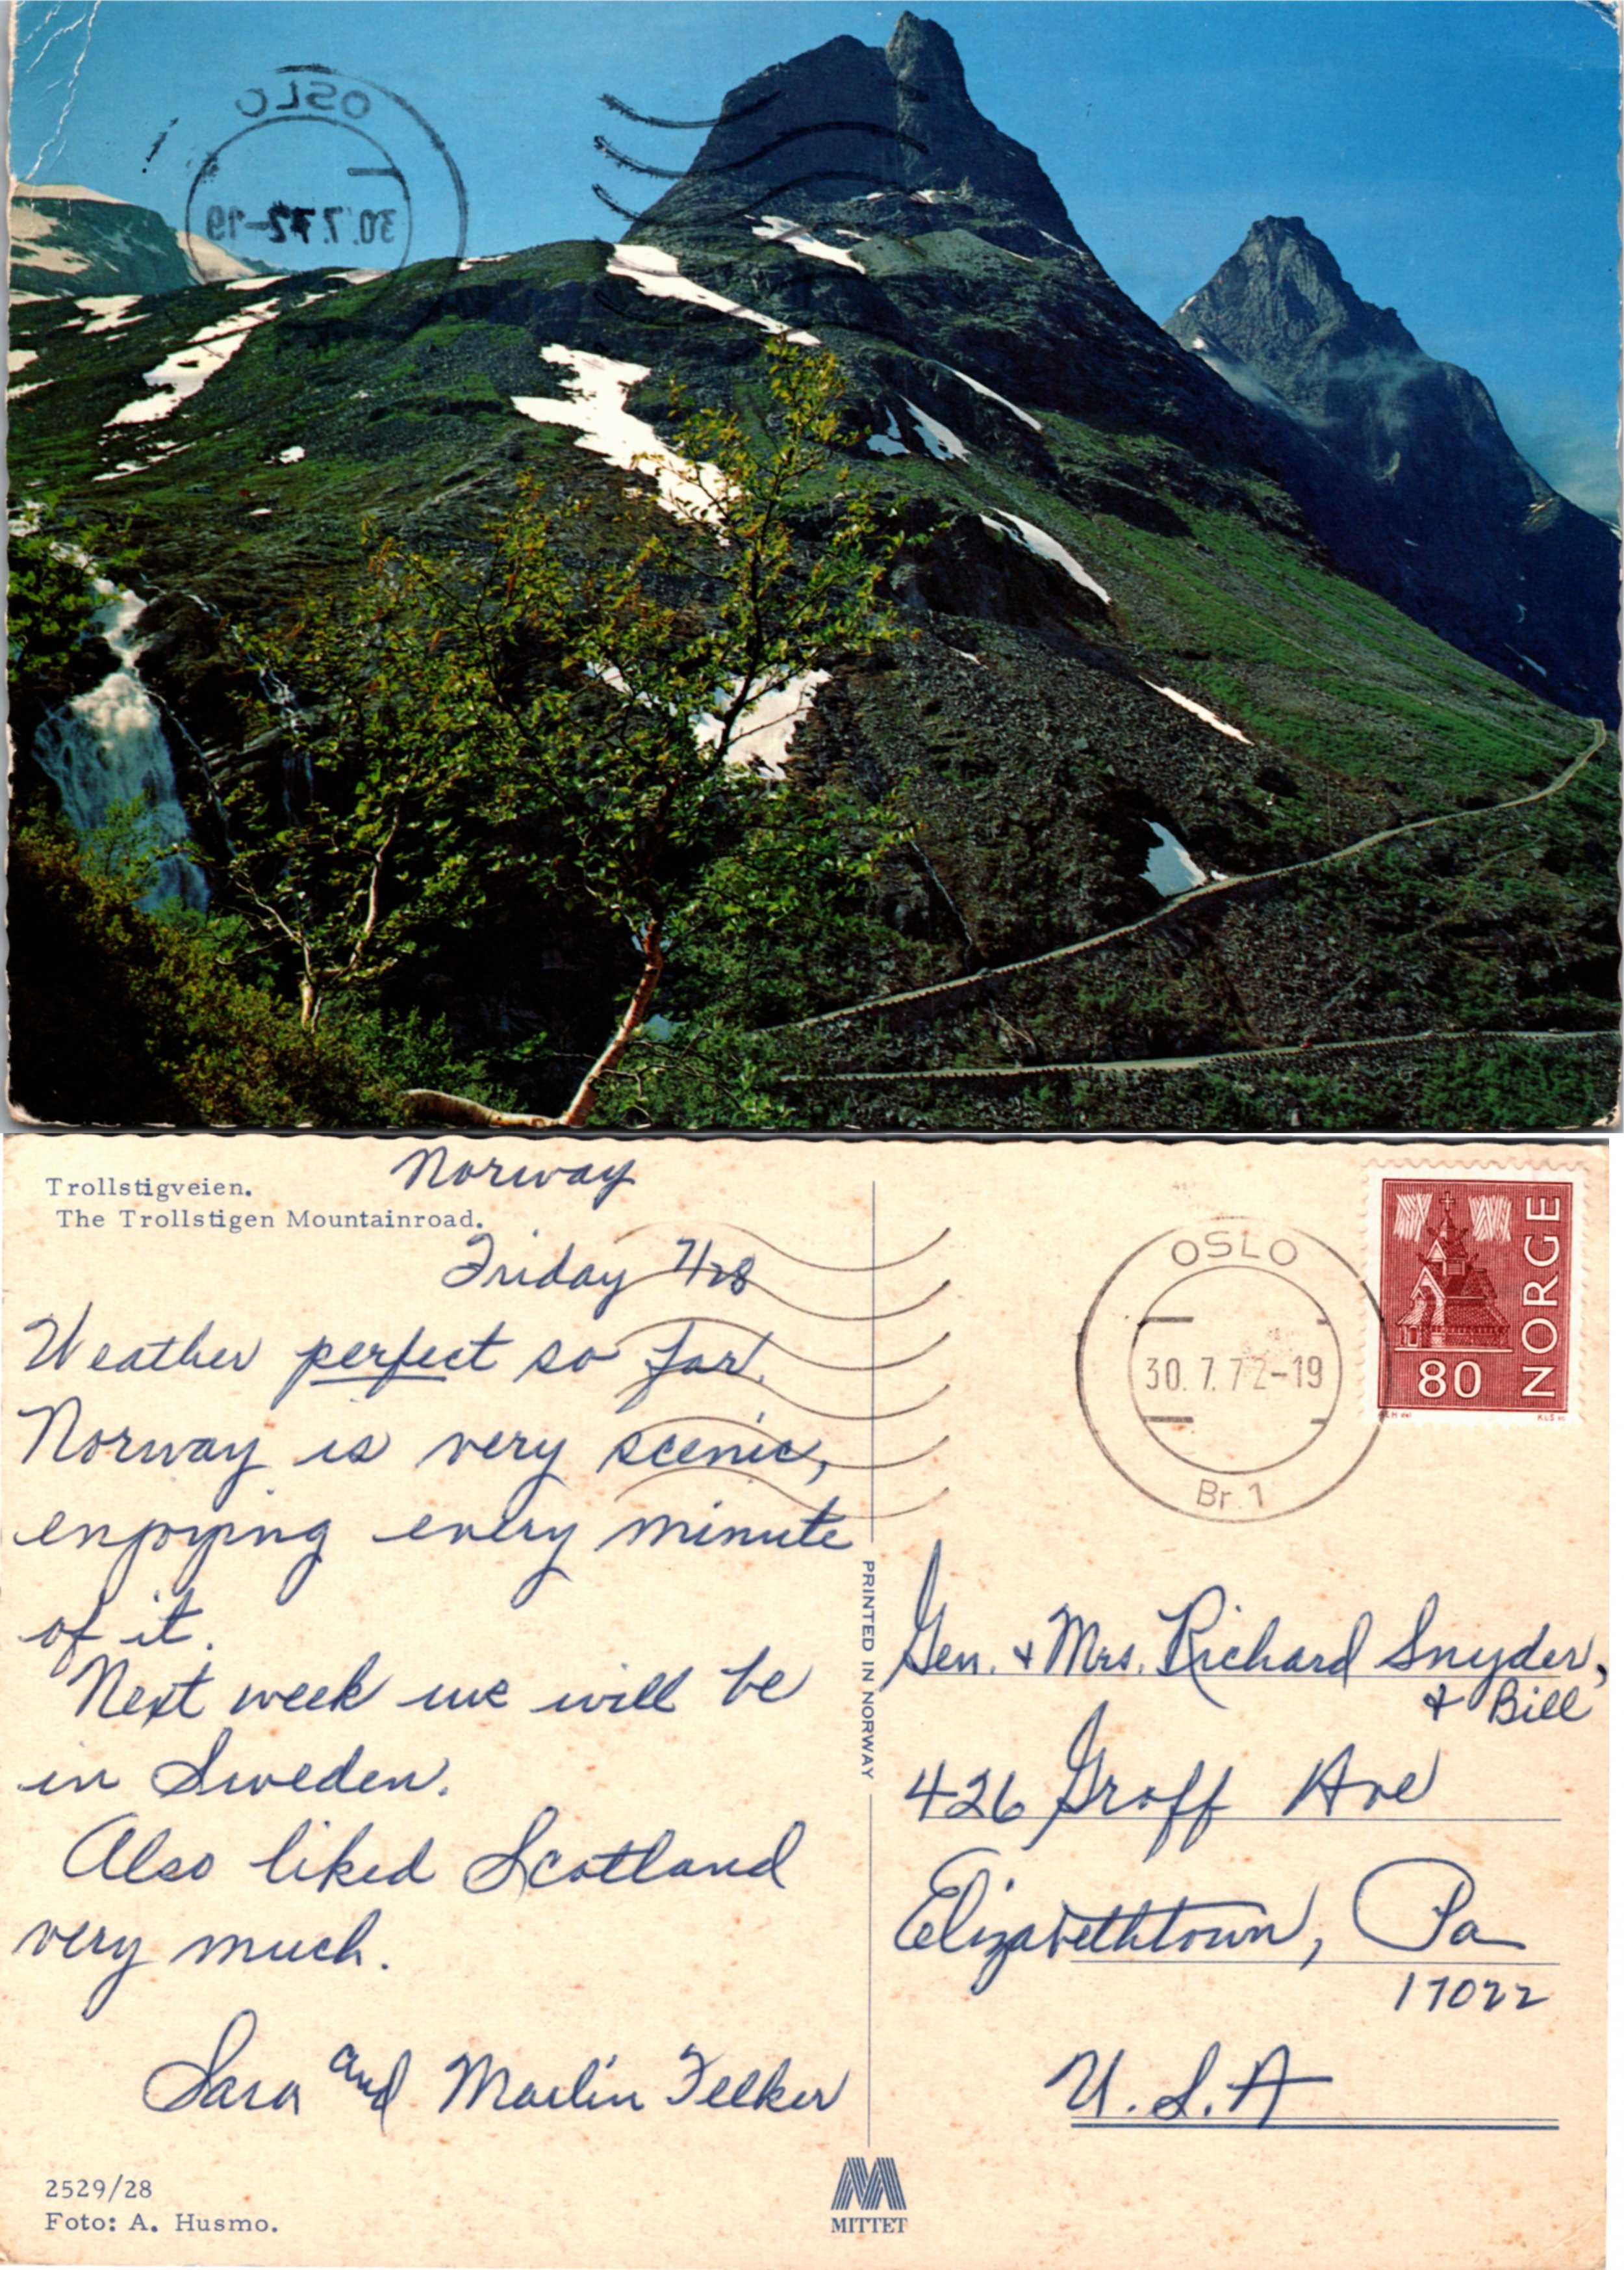 OSLO
30.7.72-19
Trollstigveien.
The Trollstigen Mountainroad.
Norway
Friday 7/28
Weather perfect so far.
Norway is very scenic,
enjoying every minute
of it.
Next week we will be
in Sweden.
Also liked Scotland
very much.
Sara and Marlin Felker
2529/28
Foto: A. Husmo.
PRINTED IN NORWAY
MITTET
OSLO
30.7.72-19
Br.1
NORGE
80
Gen. & Mrs. Richard Snyder,
& Bill
426 Groff Ave
Elizabethtown, Pa
17022
U.S.A